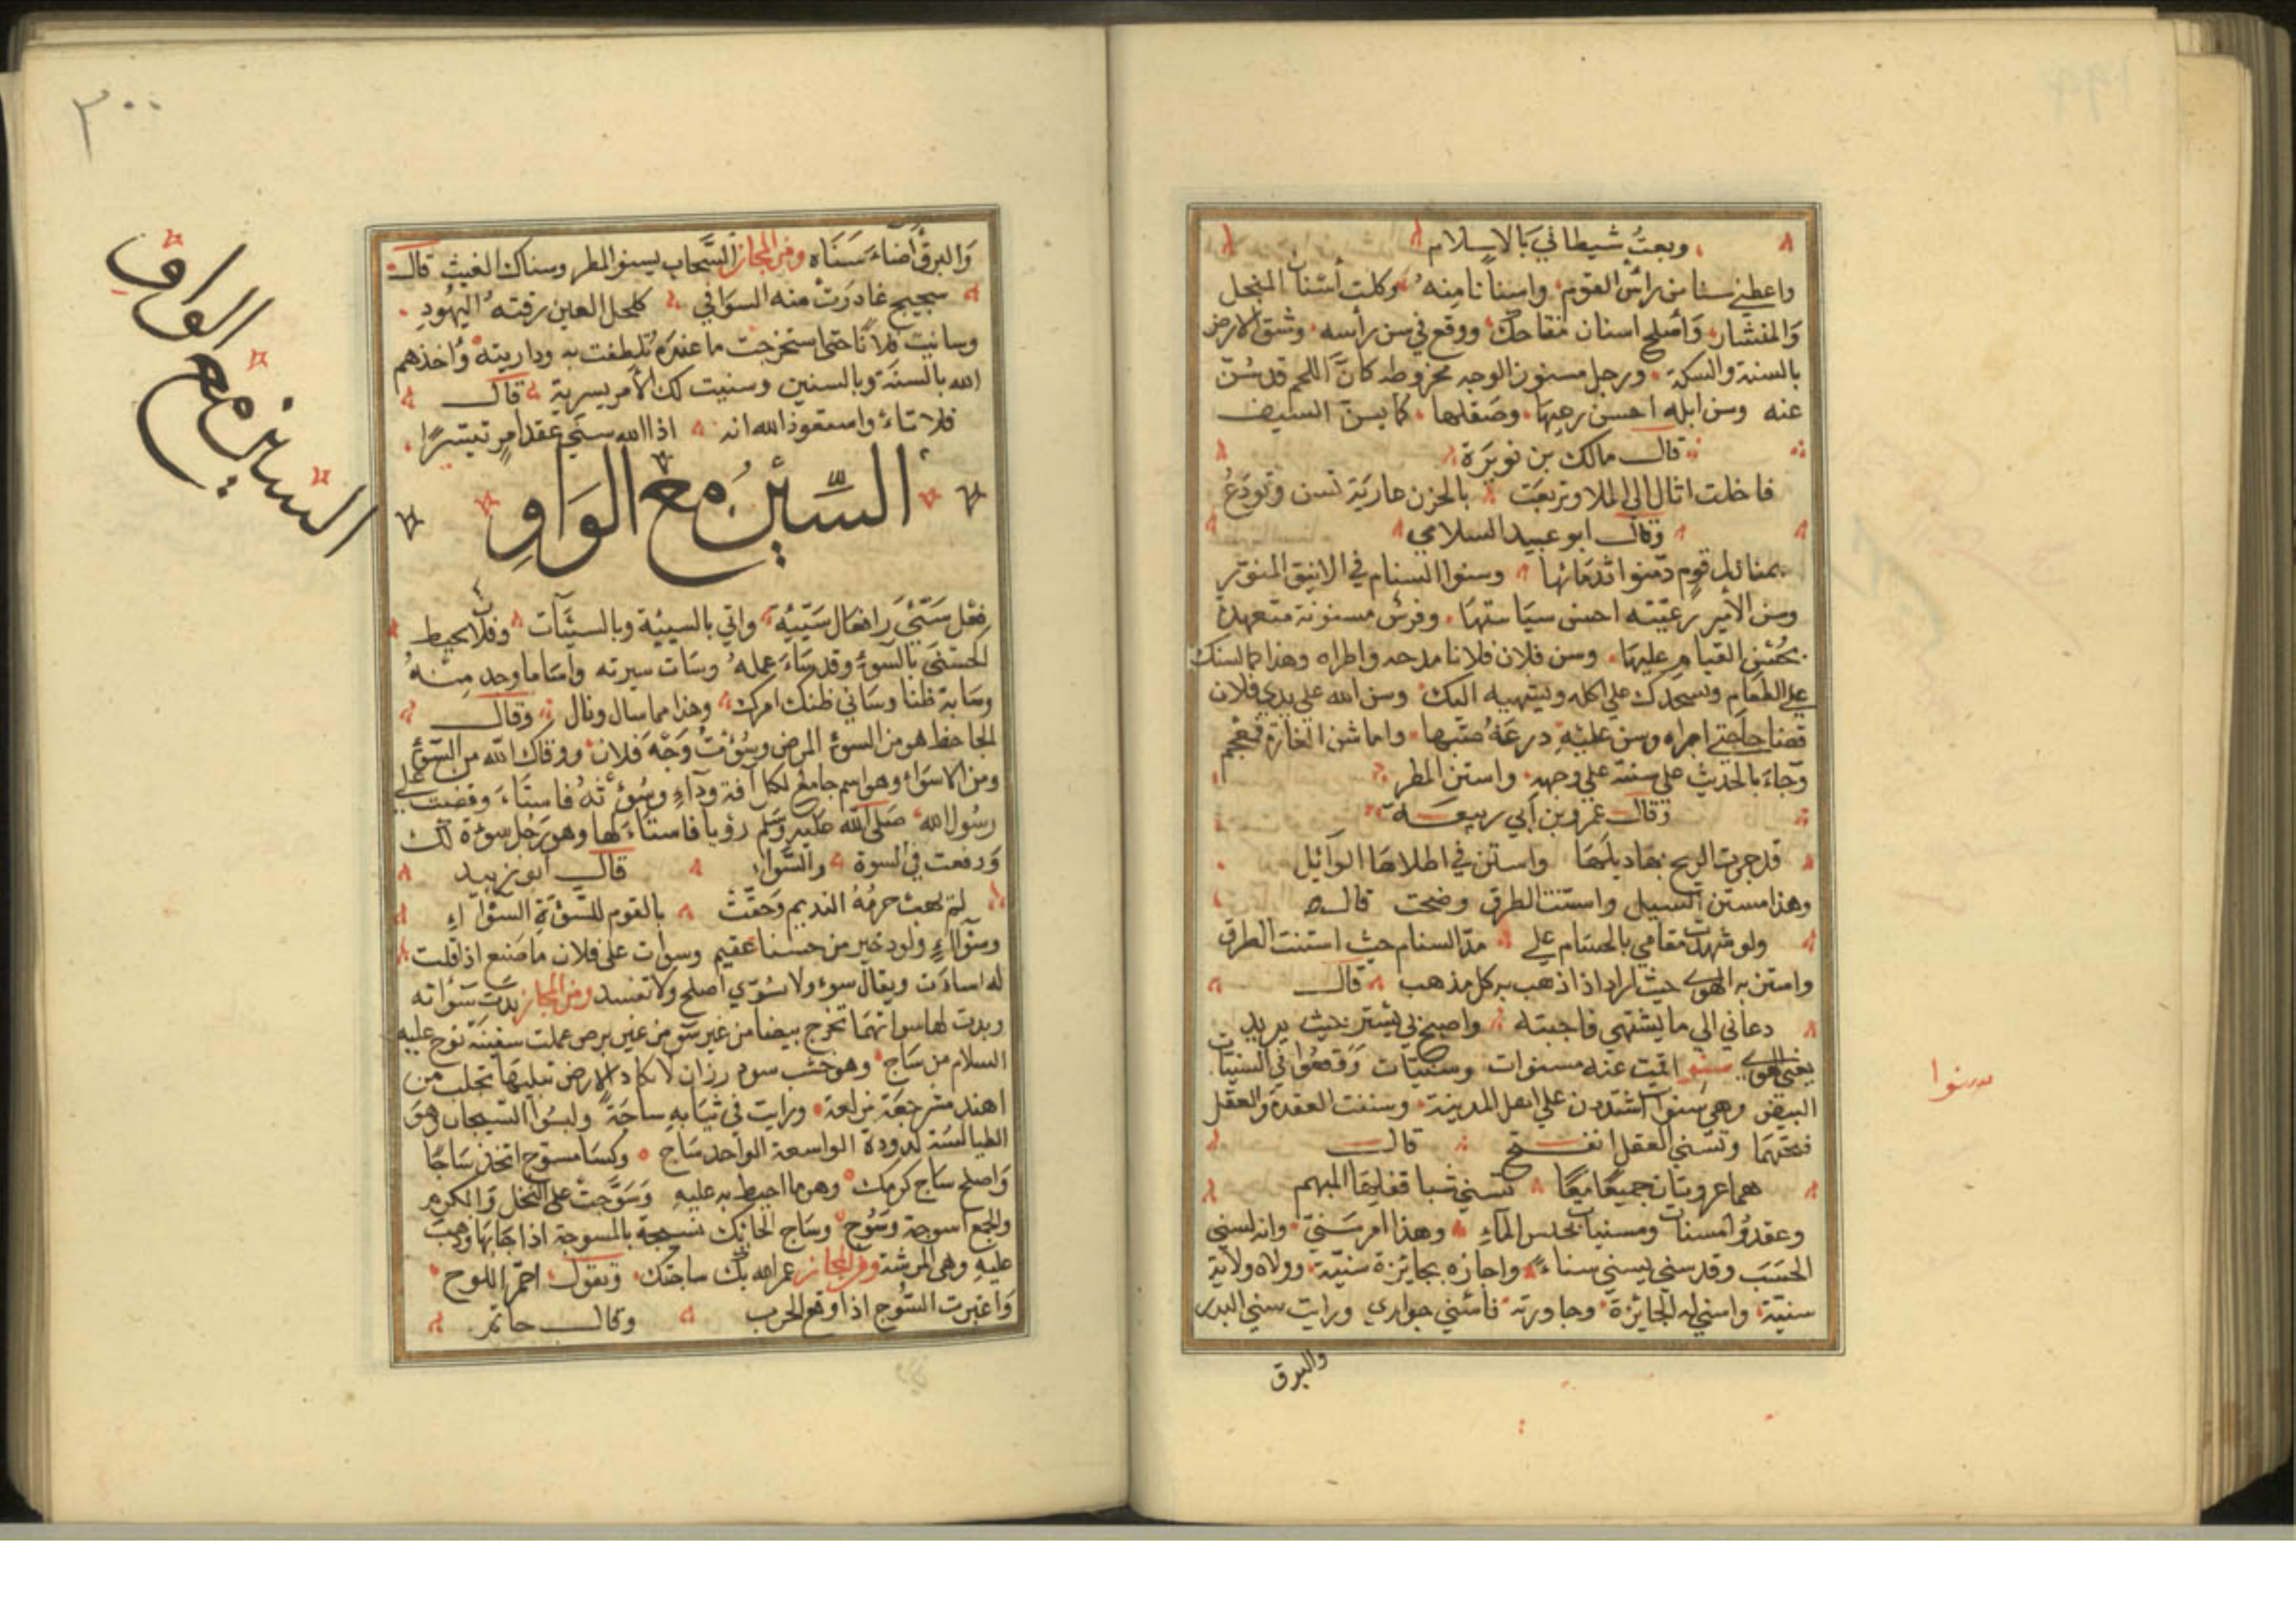 وبعتُ شيطاني بالاسلام
واعطني سنا من رأس القوم واسنانا منه وكلت أسنان المنجل
والمنشار وأصلح اسنان مفتاحك ووقع في سن رأسه وشق الارض
بالسنة والسكة ورجل مسنون الوجه مخروطه كانّ اللحم قد سُنّ
عنه وسن ابله احسن رعيها وصقلها كما يسن السيف
قال مالك بن نويرة
قاظت اثال الى الملا وتربعت بالحزن عازبة تسن وتودع
وقال ابو عبيد السلامي
قوم دمنوا وسنوا السنام في الانيق
وسن الأمير رعيّته احسن سياستها وفرس مسنونة متعهدة
بحسن القيام عليها وسن فلان فلانا مدحه واطراه وهذا مما يسنك
على الطعام ويشحذك على اكله ويشهيه اليك وسن الله على يدي فلان
قضا حاجتي اجراه وسن عليه درعهُ صبها واما شن الغارة فمعجم
وجاء بالحديث على سننه على وجهه واستن المطر
وقال عمرو بن أبي ربيعة
قد جرت الريح بها ذيلها واستن في اطلالها الوائل
وهذا مستن السيل واستنت الطرق وضحت قال
ولو شهدت مقامي بالحسام على حدّ السنام حيث استنت الطرق
واستن به الهوى حيث اراد اذا ذهب به كل مذهب قال
دعاني الى ما يشتهي فاجبته واصبح بي يستن حيث يريد
يعني الهوى سنو اقمت عنده سنوات وسنيات ووقعوا في السنيات
البيض وهي سنوات اشتددن على اهل المدينة وسنيت العقدة والعقل
فتحتهما وتسنى العقل انفتح قال
تسنى شبا قفلها المبهم
وعقدوا مسناة ومسنيات لحبس الماء وهذا امر سَنيّ وانه لسني
الحَسَب وقد سني يسنى سناء واجازه بجايزة سنيّة وولاه ولاية
سنيّة واسنى له الجايزة وجاورته فأسنى جواري ورايت سنى البدر
والبرق
سنوا
٣٠٠
والبرق أضاء سَنَاه ومن المجاز السَّحاب يسنو المطر وسناك الغيث قال
غادرت منه السوافي ككحل العين رقته اليهود
وسانيت فلانا حتى استخرجت ما عنده تلطفت به وداريته وأخذهم
الله بالسَنَة وبالسنين وسنيت لك الأمر يسرته قال
فلا تيأسا واستغورا الله انه اذا الله سنّى عقد امرٍ تيسّرا
السّين مع الواو
السين مع الواو
فعل سَيّئ وافعال سَيّئة واتي بالسيئة وبالسيئات وفلان يحبط
الحسنى بالسوء وقد ساء عمله وساءت سيرته وأساء ما وجد منه
وساء به ظنا وساءني ظنك امرك وهذا مما ساءك وناءك وقال
الجاحظ هو من السوء المرض وسُؤْتُ وَجْهَ فلان ووقاك الله من السوء
ومن الاسواء وهو اسم جامع لكل آفة وداء وسُؤْتُهُ فاستاء وقصصت على
رسول الله صلى الله عليه وسلم رؤيا فاستاء لها وهو رجل سوءة لك
ووقعت في السوءة والسّواء قال أبو زبيد
لم يهب حرمةُ النديم وَحقّت بالقوم للسّؤءَةِ السّوآءِ
وسوآء ولود خير من حسناء عقيم وسوأت على فلان ما صنع اذا قلت
له اسأت ويقال سوء ولا تسوّي اصلح ولا تفسد ومن المجاز بدت سَوأته
وبدت لهما سوآتهما تخرج بيضا من غير سوء من غير برص عملت سفينة نوح عليه
السلام من ساج وهو خشب سود رزان لا تكاد الارض تبليها تجلب من
الهند مشرجعة مربعة ورايت في ثيابه ساجَة ولبسُوا السيجان وهي
الطيالسة المدورة الواسعة الواحد ساج وكساء مسوّج اتخذ ساجا
واصلح ساج كرمك وهو ما احيط به عليه وَسَوّجت على النخل والكرم
والجمع اسوجة وسُوج وساج الحائك نسيجه بالمسوجة اذا جا بها وذهب
عليه وهي المرشة ومن المجاز عمر الله بك ساجتك وتقول احمّر اللوح
واغبرت السُوج اذا وقع الحرب وقال حاتم